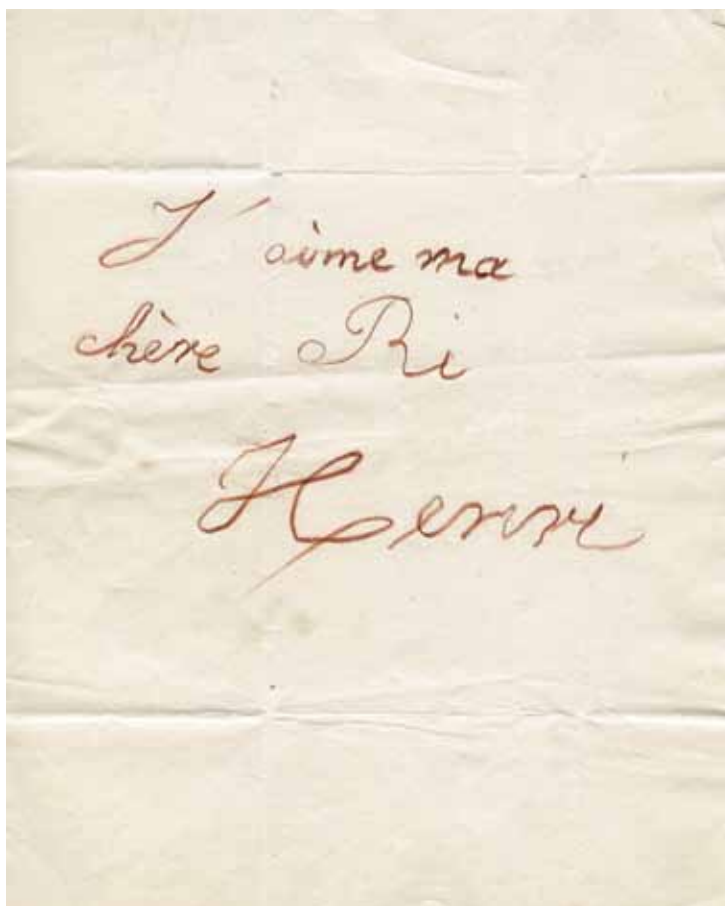 J'aime ma
chère Ri
Henri